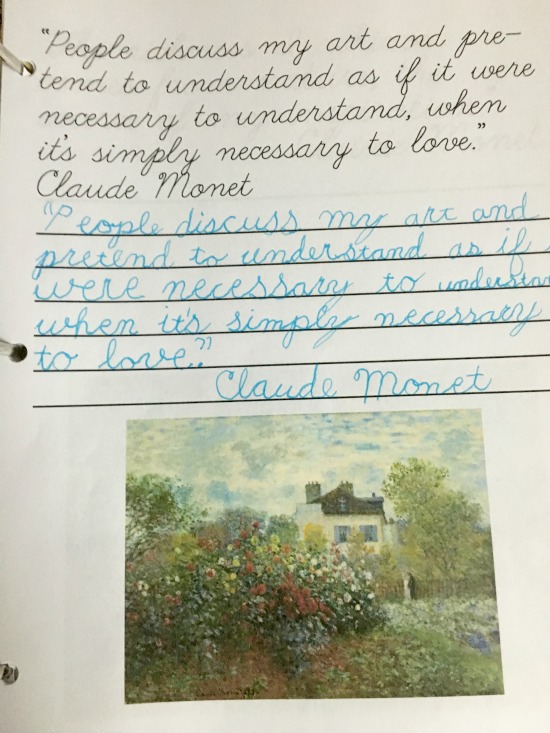 "People discuss my art and pre-
tend to understand as if it were
necessary to understand, when
it's simply necessary to love."
Claude Monet
"People discuss my art and
pretend to understand as if
were necessary to understan
when it's simply necessary
to love."
Claude Monet